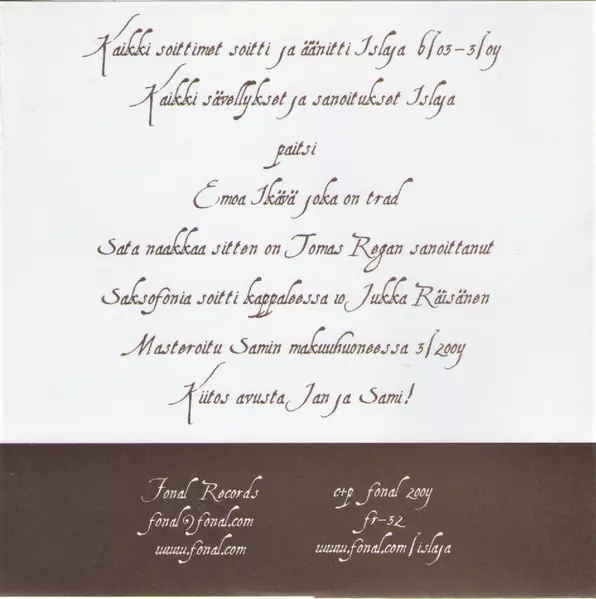 Kaikki soittimet soitti ja äänitti Islaja 6/03-3/04
Kaikki sävellykset ja sanoitukset Islaja
paitsi
Emoa Ikävä joka on trad
Sata naakkaa sitten on Tomas Regan sanoittanut
Saksofonia soitti kappaleessa 10 Jukka Räisänen
Masteroitu Samin makuuhuoneessa 3/2004
Kiitos avusta Jan ja Sami!
Fonal Records
fonal@fonal.com
www.fonal.com
c+p fonal 2004
fr-32
www.fonal.com/islaja